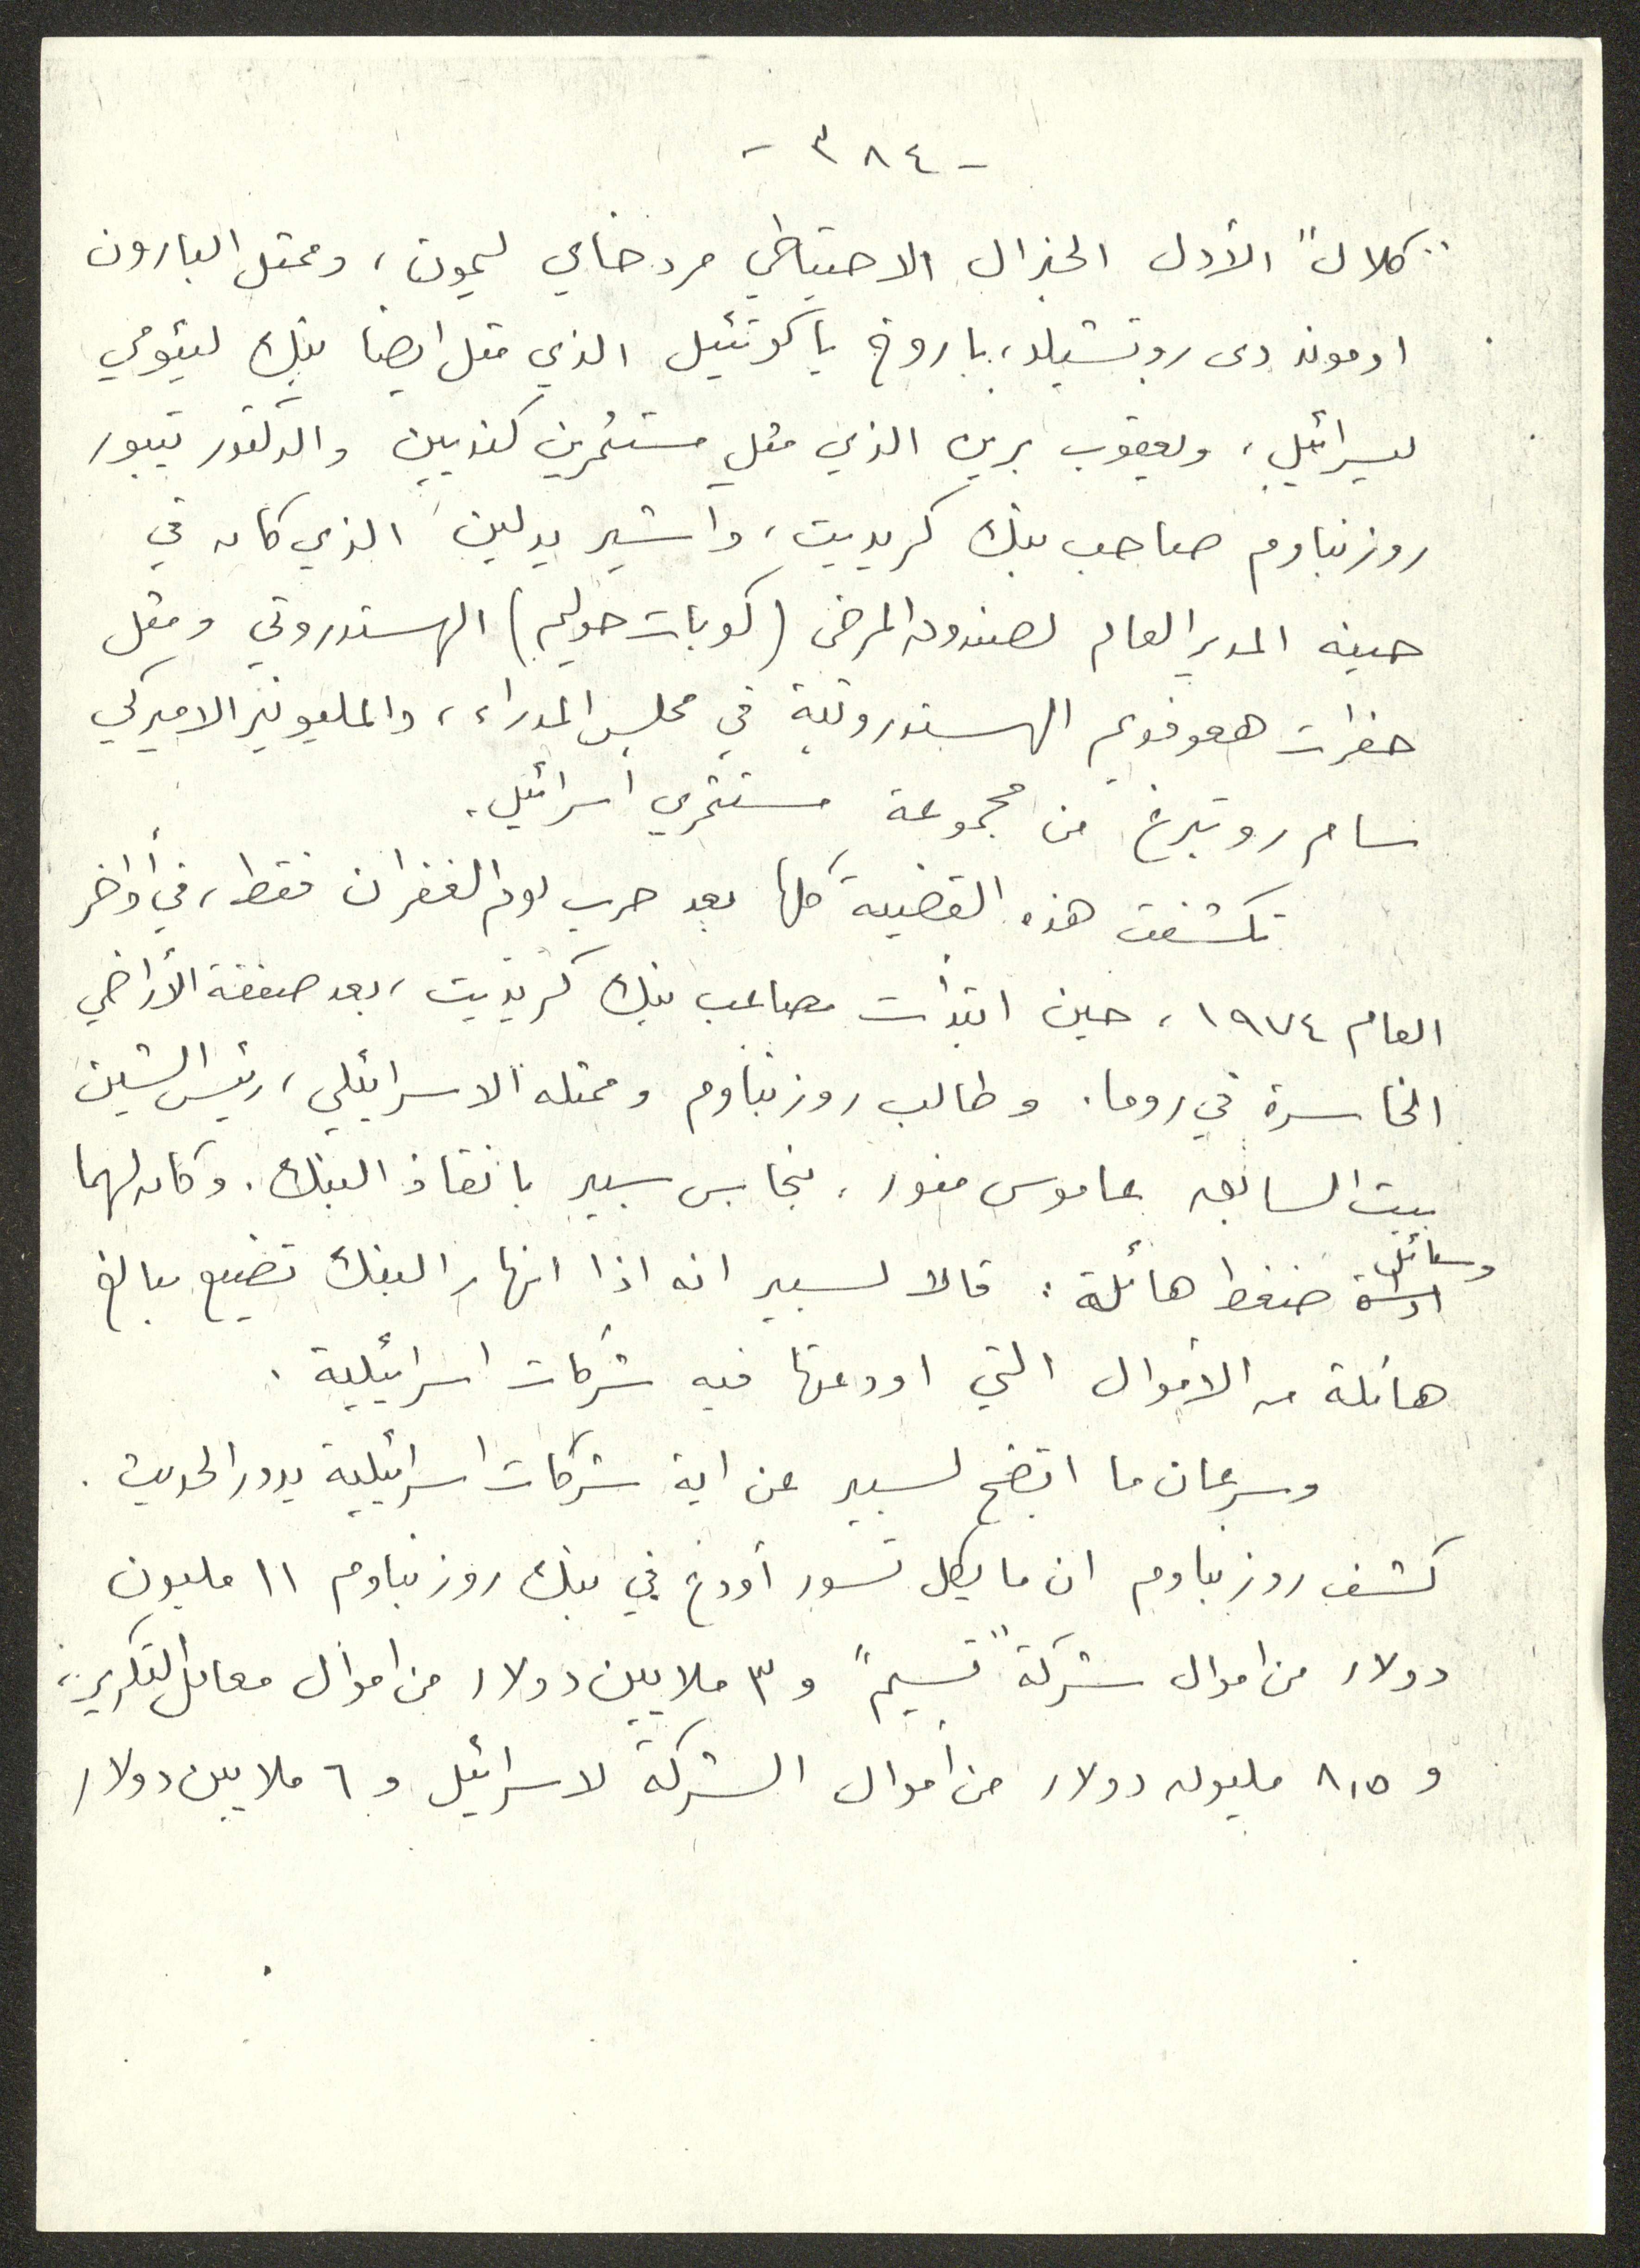 - ٣٨٤ -
"كلال" الأول الجنرال الاحتياطي مردخاي ليمون، وممثل البارون
ادموند دى روتشيلد، باروخ ياكوتئيل الذي مثل ايضا بنك ليئومي
ليسرائيل، ويعقوب برين الذي مثل مستثمرين كنديين والدكتور تيبور
روزنباوم صاحب بنك كريديت، واشير يدلين الذي كان في
حينه المدير العام لصندوق المرضى (كوبات حوليم) الهستدروتي ومثل
حفرات هعوفديم الهستدروتية في مجلس المدراء، والمليونير الاميركي
سام روتبرغ من مجموعة مستثمري اسرائيل.
تكشفت هذه القضية كلها بعد حرب يوم الغفران فقط، في أواخر
العام ١٩٧٤، حين ابتدأت مصاعب بنك كريديت، بعد صفقة الأراضي
الخاسرة في روما. وطالب روزنباوم وممثله الاسرائيلي، رئيس الشين
بيت السابق عاموس منور، بنحاس سبير بانقاذ البنك. وكان لهما
وسائل
ضغط هائلة: قالا لسبير انه اذا انهار البنك تضيع مبالغ
هائلة من الأموال التي اودعتها فيه شركات اسرائيلية.
وسرعان ما اتضح لسبير عن اية شركات اسرائيلية يدور الحديث.
كشف روزنباوم ان مايكل تسور أودع في بنك روزنباوم ١١ مليون
دولار من اموال شركة "تسيم" و ٣ ملايين دولار من اموال معامل التكرير،
و ٨,٥ مليون دولار من أموال الشركة لاسرائيل و ٦ ملايين دولار